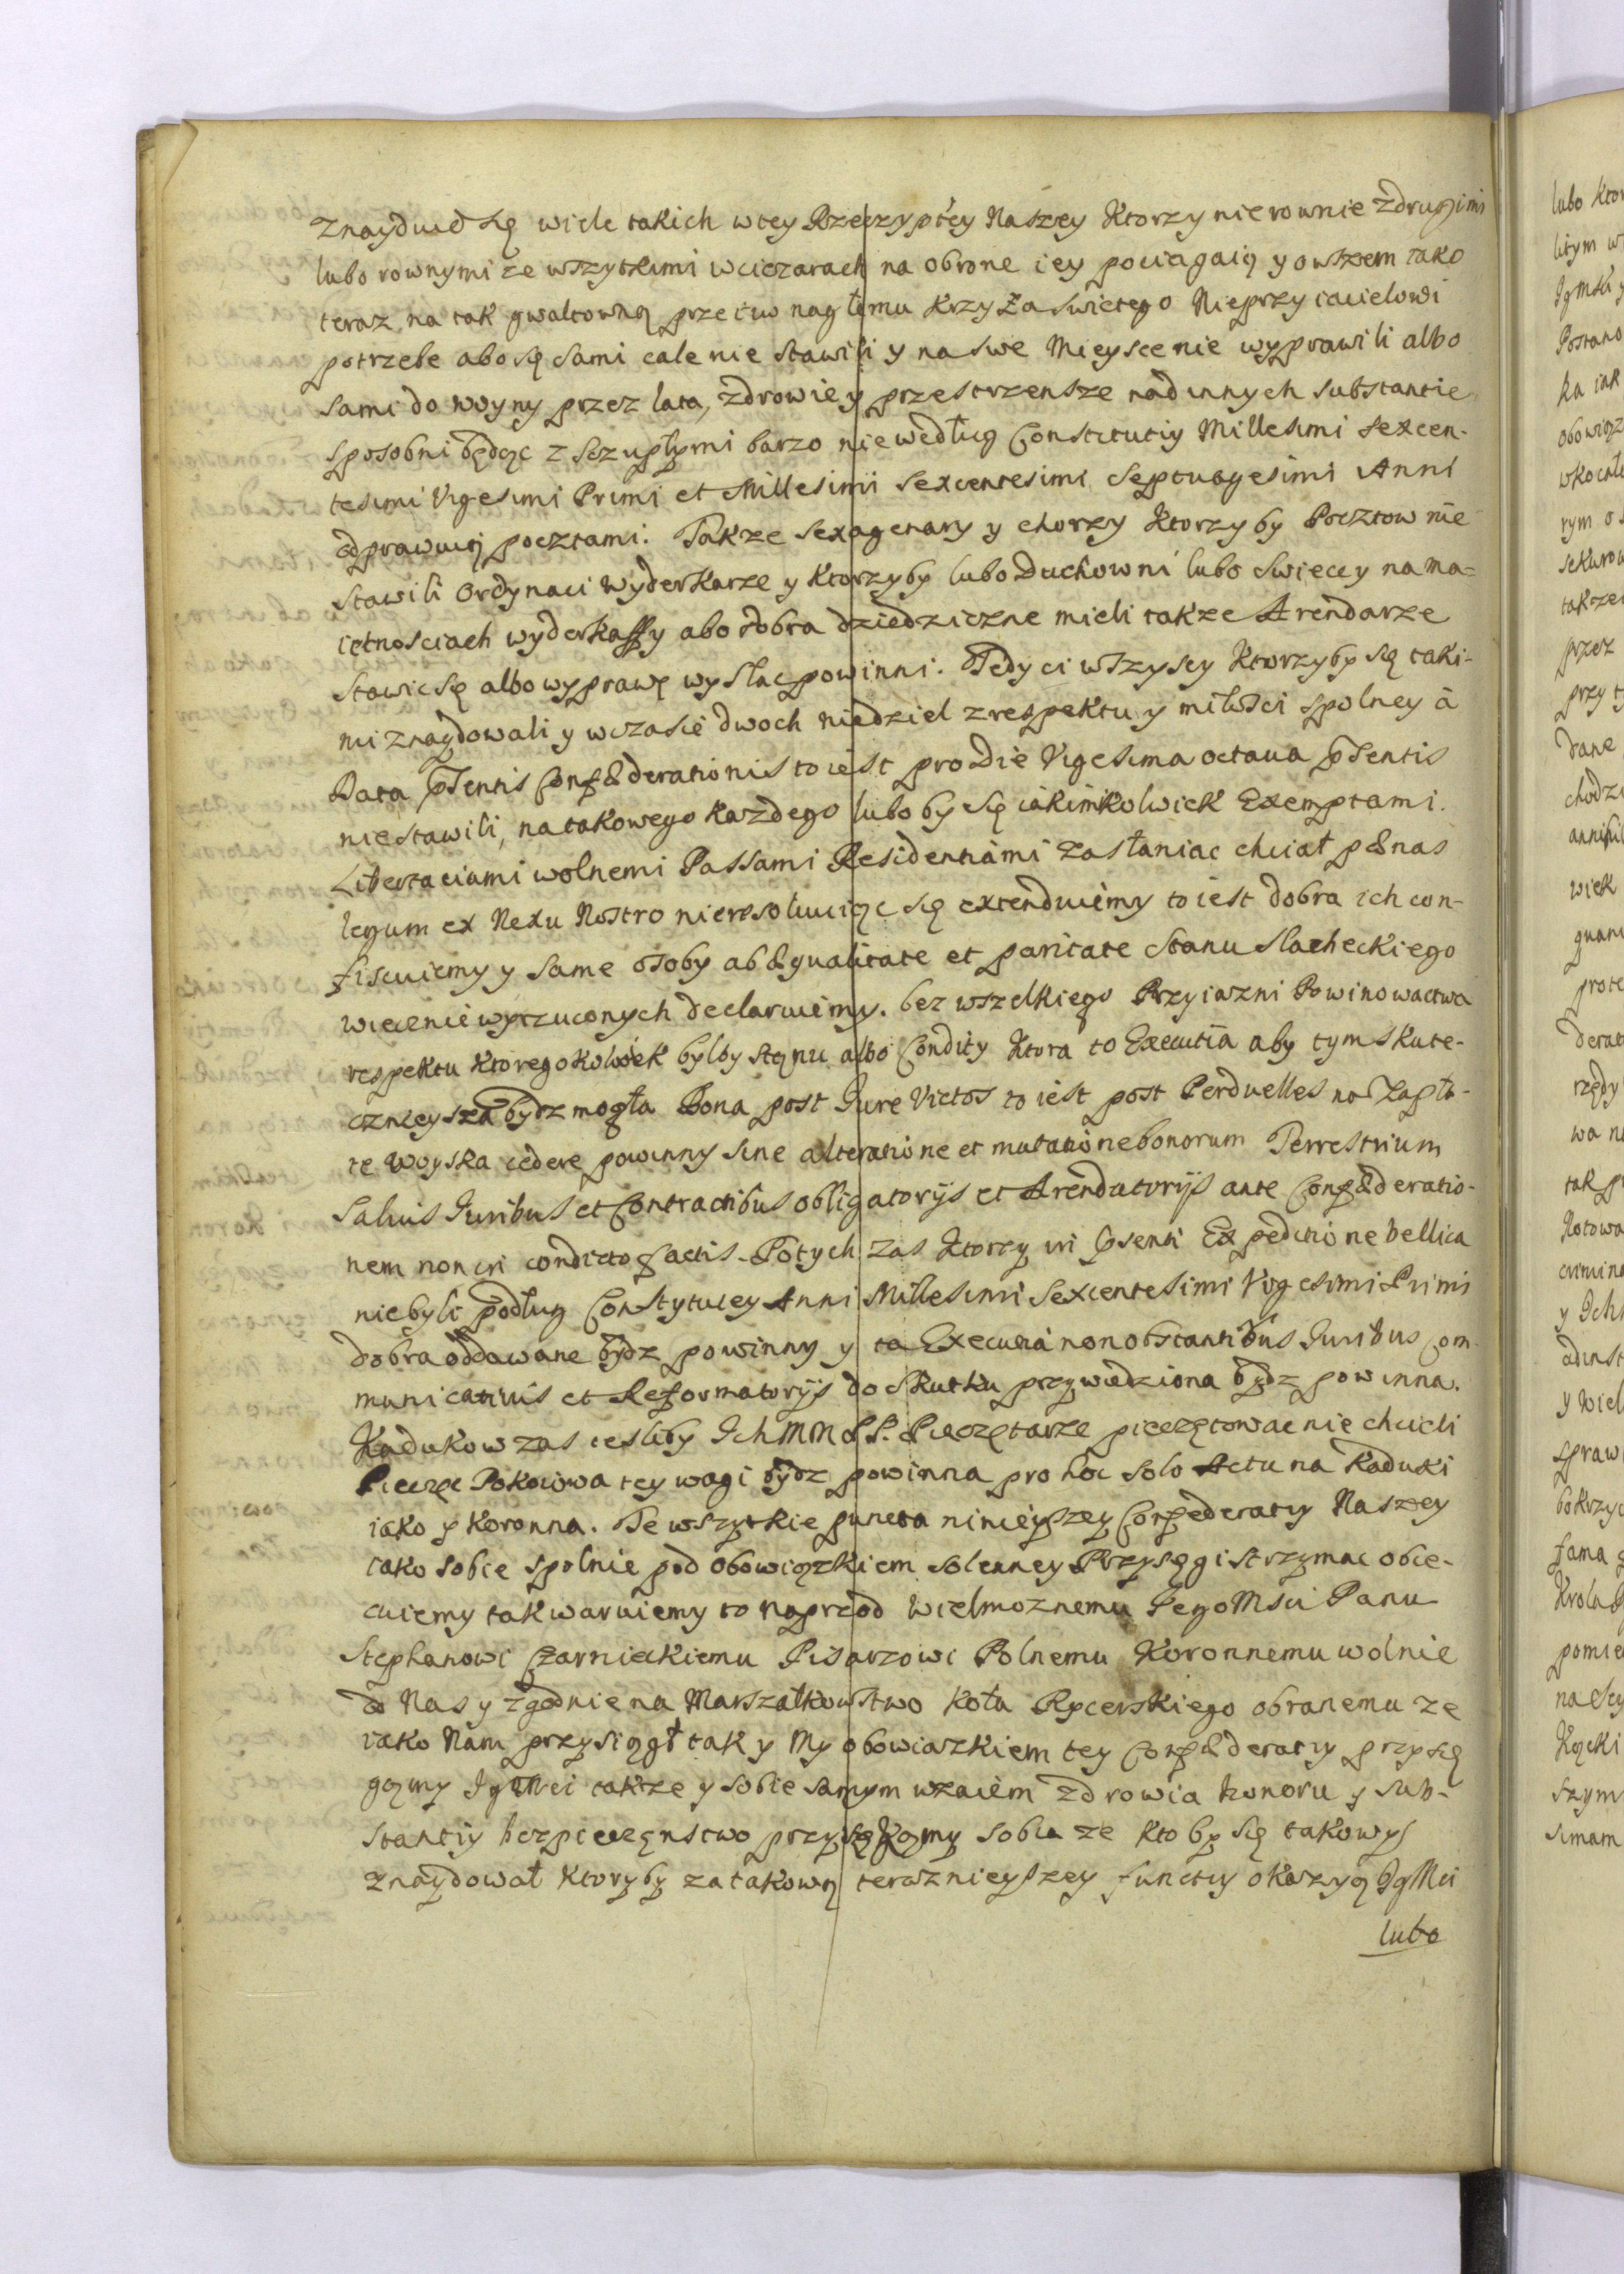 znayduie się wiele takich w tey Rzeczypttey Naszey Ktorzy nierownie z drugimi
lubo rownymi ze wszytkimi w ciezarach na obrone iey pociagaią y owszem tako
teraz na tak gwaltowną przeciw nagłemu Krzyża swiętego Nieprzyiacielowi
potrzebe abo się sami cale nie stawili y na swe Mieysce nie wyprawili albo
sami do woyny przez lata, zdrowie y przestrzensze nad innych substantie
sposobni będąc z sczupłymi barzo nie według Constitutiy Millesimi sexcen-
tesimi Vigesimi Primi et Millesimi Sexcentesimi Septuagesimi Anni
odprawuią pocztami. Takze sexagenary y chorzy Ktorzy by Pocztow nie
stawili Ordynaci Wyderkarze y Ktorzyby lubo Duchowni lubo Swieccy na ma=
iętnosciach wyderkaffy abo dobra dziedziczne mieli takze Arendarze
stawic się albo wyprawę wysłac powinni. Tedy ci wszyscy Ktorzyby się taki-
mi znaydowali y w czasie dwoch niedziel z respektu y miłosci spolney à
Data pñtentis Confæderationis to iest pro Die Vigesima octaua pñtentis
nie stawili, na takowego kazdego lubo by się iakimkolwiek Exemptami
Libertaciami wolnemi Passami Residentiami zasłaniac chciał pænas
legum ex Nexu Nostro nieresoluuiąc się extenduiemy to iest dobra ich con-
fiscuiemy y same osoby ab æqualitate et paritate Stanu slacheckiego
wiecznie wyrzuconych declaruiemy. bez wszelkiego Przyiazni Powinowactwa
respektu ktoregokolwiek byłby stanu albo Condity Ktora to Executia aby tym skute-
cznieysza bydz mogła Bona post Jure Victos to iest post Perduelles na Zapła-
te Woyska cedere powinny sine alteratione et mutatione bonorum Terrestrium
Saluis Iuribus et Contractibus obligatorijs et Arendatorijs ante Confæderatio-
nem non in condicto factis. Po tych zas Ktorzy in pñsenti Expeditione bellica
nie byli podług Constytucey Anni Millesimi Sexcentesimi Vigesimi Primi
dobra oddawane bydz powinny y ta Executia non obstantibus Iuribus Com-
municatiuis et Reformatorijs do skutku przywiedziona bydz powinna.
Kadukow zas iesliby Ich MM P.P. Pieczętarze pieczętowac nie chcieli
Pieczęc Pokoiowa tey wagi bydz powinna pro hoc solo Actu na Kaduki
iako y Koronna. Te wszytkie puncta ninieyszey Confederaty Naszey
iako sobie spolnie pod obowiązkiem solenney Przysęgi strzymac obie-
cuiemy tak waruiemy to naprzod Wielmoznemu Iego Msci Panu
Stephanowi Czarnieckiemu Pisarzowi Polnemu Koronnemu wolnie
od Nas y zgodnie na Marszałkowstwo Koła Rycerskiego obranemu ze
iako Nam przysiągł tak y My obowiazkiem tey Confæderaty przysię
gamy IgMci takze y sobie samym wzaiem zdrowia honoru y sub-
stantiy bezpieczęnstwo przysięgamy sobie ze kto by się takowy
znaydował ktoryby za takową terazniejszey functiy okazyą IgMci
lubo